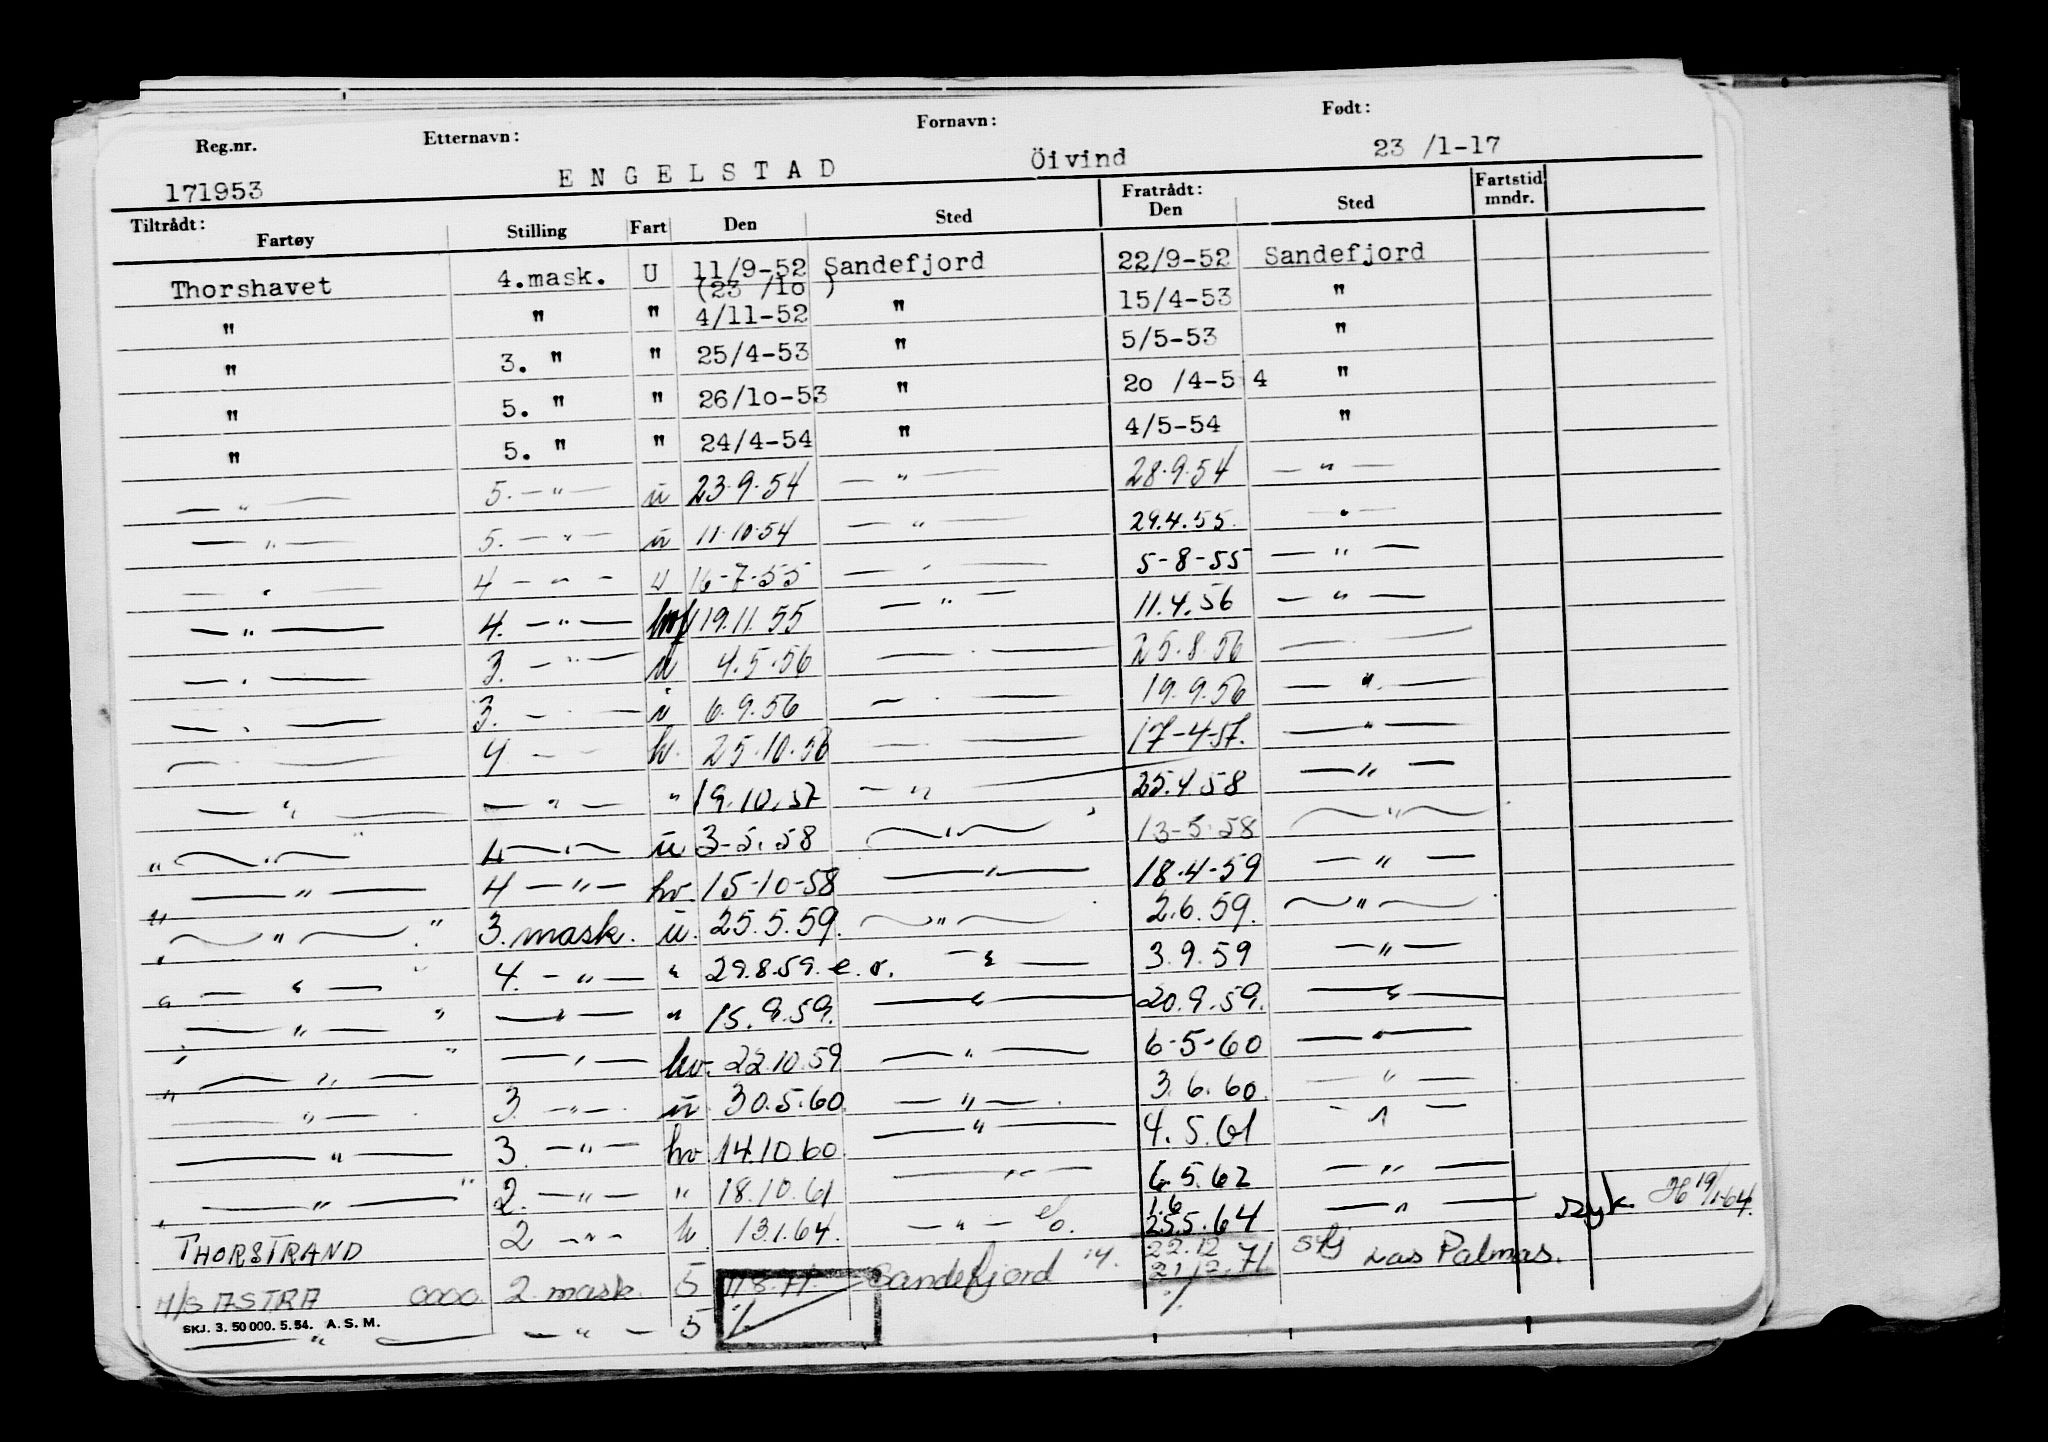 Reg.nr. Etternavn: Fornavn: Født:
171953 ENGELSTAD Öivind 23 /1-17
Tiltrådt: Fratrådt: Fartstid
Fartøy Stilling Fart Den Sted Den Sted mndr.
Thorshavet 4.mask. U 11/9-52 Sandefjord 22/9-52 Sandefjord
(23 /10 )
" " " 4/11-52 " 15/4-53 "
" 3. " " 25/4-53 " 5/5-53 "
" 5. " " 26/10-53 " 20 /4-54 "
" 5. " " 24/4-54 " 4/5-54 "
— " — 5. — " — u 23.9.54 — " — 28.9.54 — " —
— " — 5. — " — u 11.10.54 — " — 29.4.55. — " —
— " — 4 — " — u 16-7-55 — " — 5-8-55 — " —
— " — 4. — " — hvf 19.11.55 — " — 11.4.56 — " —
— " — 3. — " — u 4.5.56 — " — 25.8.56 —
— " — 3. — " — u 6.9.56 — " — 19.9.56 — " —
— " — 4 — " — hv. 25.10.56 — " — 17-4-57. — " —
— " — — " — " 19.10.57 — " — 25.4.58 — " —
" — " — " 4 — " — u 3-5.58 — " — 13-5-58 — " —
— " — 4 — " — hv. 15-10-58 — " — 18.4-59 — " —
" — " — " 3. mask. u. 25.5.59. — " — 2.6.59. — " —
" — " — " 4. — " — " 29.8.59. e.o. — " — 3.9.59 — " —
" — " — " — " — " 15.9.59. — " — 20.9.59. — " —
" — " — " — " — hv. 22.10.59 — " — 6-5-60 — " —
" — " — 3 — " — u 30.5.60. — " — 3.6.60. — " —
— " — 3 — " — hv. 14.10.60 — " — 4.5.61 — " —
— " — " 2. — " — " 18.10.61 — " — 6.5.62 — " —
THORSTRAND 2 — " — 13.1.64. — " — e/o. 1.6 25.5.64 — " — syk. 19/1-64.
M/S ASTRA 0000 2 mask. 5 Sandefjord 22.12 21.12.71 Las Palmas.
SKJ. 3. 50 000. 5. 54. A. S. M.
— " — — " — 5 %